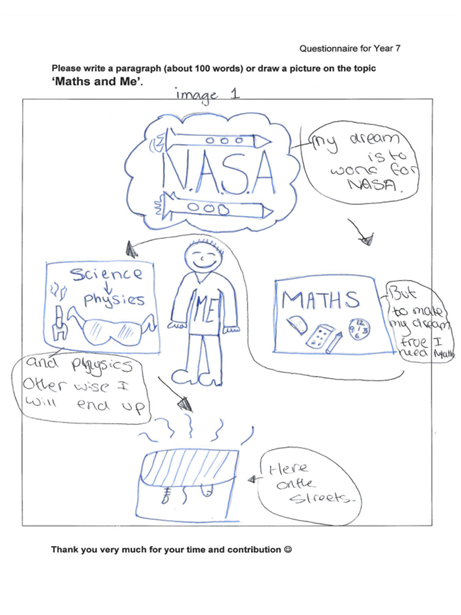 Questionnaire for Year 7
Please write a paragraph (about 100 words) or draw a picture on the topic
'Maths and Me'.
image 1
N.A.S.A
My dream
is to
wore for
NASA.
MATHS
12
9 3
6
But
to make
my dream
true I
need Maths
Science
physics
ME
and physics
Other wise I
will end up
Here
on the
streets.
Thank you very much for your time and contribution ☺